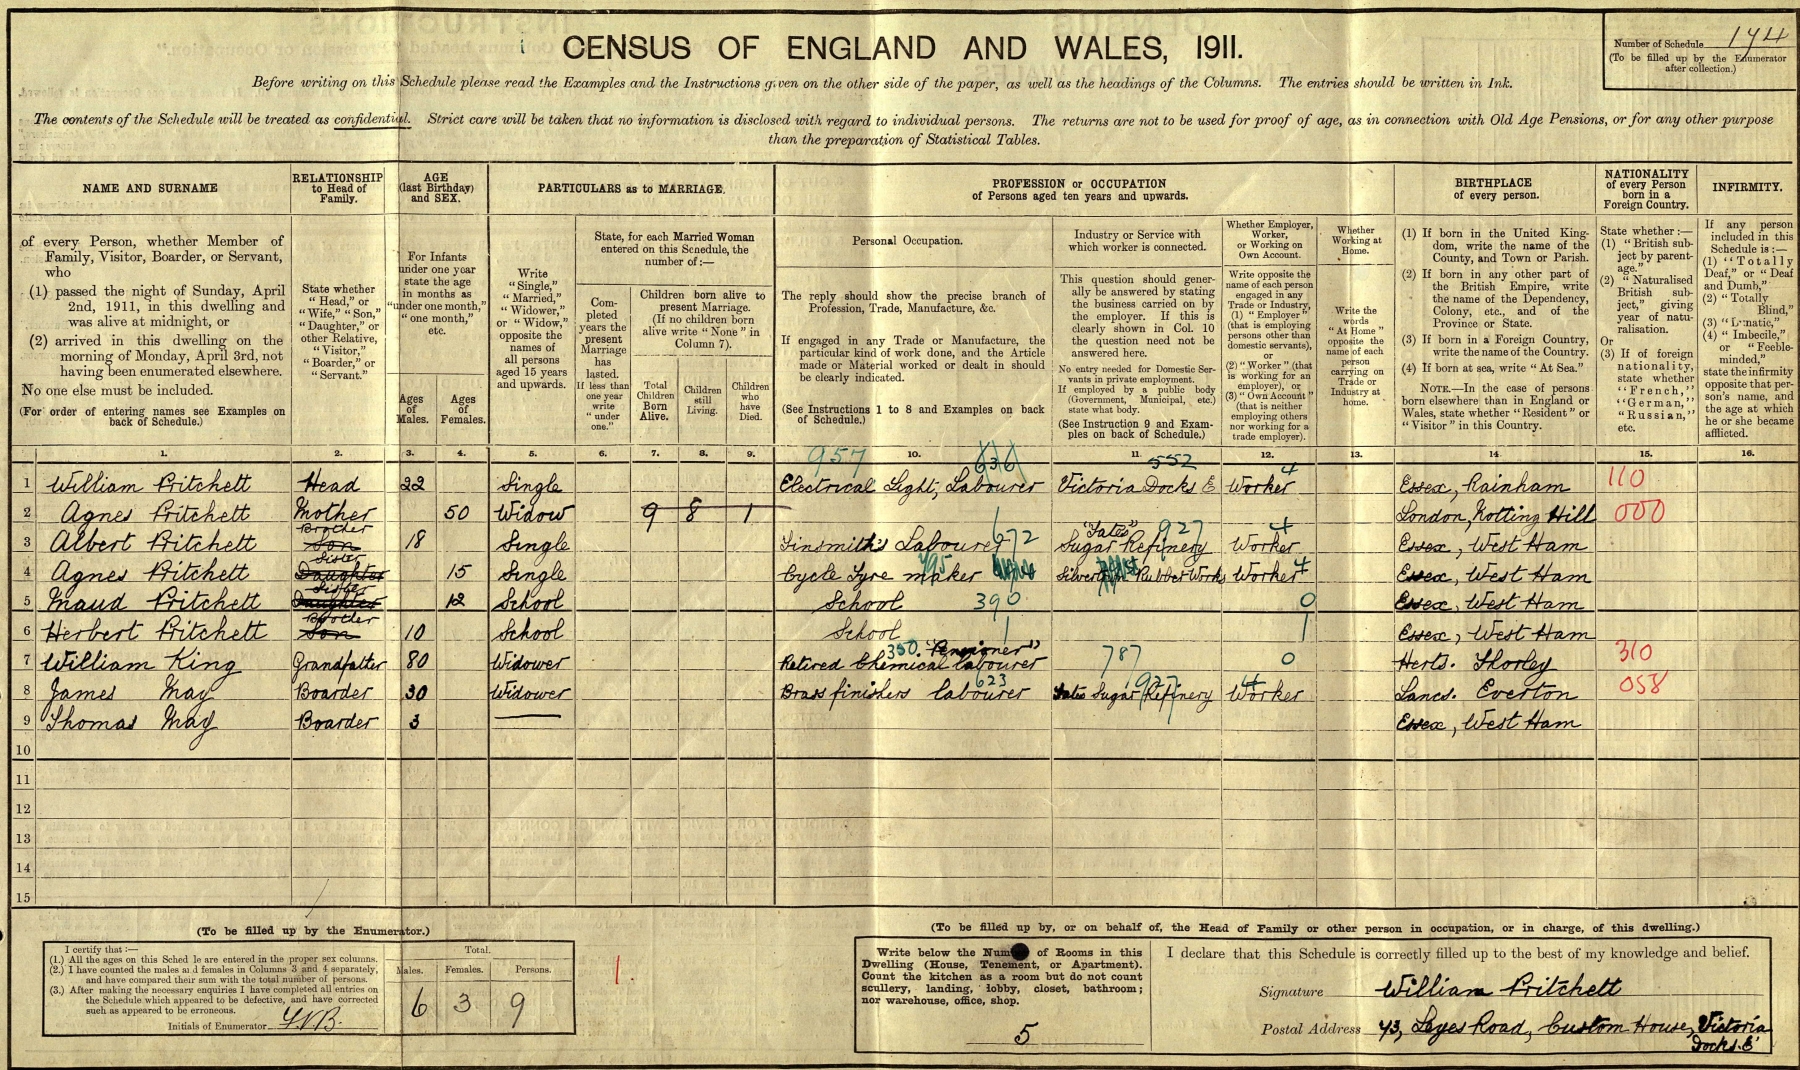 CENSUS OF ENGLAND AND WALES, 1911.
Number of Schedule 194
(To be filled up by the Enumerator
after collection.)
Before writing on this Schedule please read the Examples and the Instructions given on the other side of the paper, as well as the headings of the Columns. The entries should be written in Ink.
The contents of the Schedule will be treated as confidential. Strict care will be taken that no information is disclosed with regard to individual persons. The returns are not to be used for proof of age, as in connection with Old Age Pensions, or for any other purpose
than the preparation of Statistical Tables.
NAME AND SURNAME
of every Person, whether Member of
Family, Visitor, Boarder, or Servant,
who
(1) passed the night of Sunday, April
2nd, 1911, in this dwelling and
was alive at midnight, or
(2) arrived in this dwelling on the
morning of Monday, April 3rd, not
having been enumerated elsewhere.
No one else must be included.
(For order of entering names see Examples on
back of Schedule.)
RELATIONSHIP
to Head of
Family.
State whether
"Head," or
"Wife," "Son,"
"Daughter," or
other Relative,
"Visitor,"
"Boarder," or
"Servant."
AGE
(last Birthday)
and SEX.
For Infants
under one year
state the age
in months as
"under one month,"
"one month,"
etc.
Ages
of
Males.
Ages
of
Females.
PARTICULARS as to MARRIAGE.
Write
"Single,"
"Married,"
"Widower,"
or "Widow,"
opposite the
names of
all persons
aged 15 years
and upwards.
State, for each Married Woman
entered on this Schedule, the
number of:—
Com-
pleted
years the
present
Marriage
has
lasted.
If less than
one year
write
"under
one."
Children born alive to
present Marriage.
(If no children born
alive write "None" in
Column 7).
Total
Children
Born
Alive.
Children
still
Living.
Children
who
have
Died.
PROFESSION or OCCUPATION
of Persons aged ten years and upwards.
Personal Occupation.
The reply should show the precise branch of
Profession, Trade, Manufacture, &c.
If engaged in any Trade or Manufacture, the
particular kind of work done, and the Article
made or Material worked or dealt in should
be clearly indicated.
(See Instructions 1 to 8 and Examples on back
of Schedule.)
Industry or Service with
which worker is connected.
This question should gener-
ally be answered by stating
the business carried on by
the employer. If this is
clearly shown in Col. 10
the question need not be
answered here.
No entry needed for Domestic Ser-
vants in private employment.
If employed by a public body
(Government, Municipal, etc.)
state what body.
(See Instruction 9 and Exam-
ples on back of Schedule.)
Whether Employer,
Worker,
or Working on
Own Account.
Write opposite the
name of each person
engaged in any
Trade or Industry,
(1) "Employer"
(that is employing
persons other than
domestic servants),
or
(2) "Worker" (that
is working for an
employer), or
(3) "Own Account"
(that is neither
employing others
nor working for a
trade employer).
Whether
Working at
Home.
Write the
words
"At Home"
opposite the
name of each
person
carrying on
Trade or
Industry at
home.
BIRTHPLACE
of every person.
(1) If born in the United King-
dom, write the name of the
County, and Town or Parish.
(2) If born in any other part of
the British Empire, write
the name of the Dependency,
Colony, etc., and of the
Province or State.
(3) If born in a Foreign Country,
write the name of the Country.
(4) If born at sea, write "At Sea."
NOTE.—In the case of persons
born elsewhere than in England or
Wales, state whether "Resident" or
"Visitor" in this Country.
NATIONALITY
of every Person
born in a
Foreign Country.
State whether :—
(1) "British sub-
ject by parent-
age."
(2) "Naturalised
British sub-
ject," giving
year of natu-
ralisation.
Or
(3) If of foreign
nationality,
state whether
"French,"
"German,"
"Russian,"
etc.
INFIRMITY.
If any person
included in this
Schedule is :—
(1) "Totally
Deaf," or "Deaf
and Dumb,"
(2) "Totally
Blind,"
(3) "Lunatic,"
(4) "Imbecile,"
or "Feeble-
minded,"
state the infirmity
opposite that per-
son's name, and
the age at which
he or she became
afflicted.
1. 2. 3. 4. 5. 6. 7. 8. 9. 10. 11. 12. 13. 14. 15. 16.
957 636 552 4
1 William Pritchett Head 22 Single Electrical Light, Labourer Victoria Docks E Worker Essex, Rainham 110
2 Agnes Pritchett Mother 50 Widow 9 8 1 London, Notting Hill 000
Brother "Tates" 927 4
3 Albert Pritchett Son 18 Single Tinsmith's Labourer 672 Sugar Refinery Worker Essex, West Ham
Sister 795
4 Agnes Pritchett Daughter 15 Single Cycle Tyre maker Silvertown Rubber Works Worker 4 Essex, West Ham
Sister
5 Maud Pritchett Daughter 12 School School 390 0 Essex, West Ham
Brother
6 Herbert Pritchett Son 10 School School 1 1 Essex, West Ham
350. "Pensioner"
7 William King Grandfather 80 Widower Retired Chemical labourer 787 0 Herts. Thorley 310
623 927 4
8 James May Boarder 30 Widower Brass finishers labourer Tates Sugar Refinery Worker Lancs. Everton 058
9 Thomas May Boarder 3 Essex, West Ham
10
11
12
13
14
15
(To be filled up by the Enumerator.)
I certify that :—
(1.) All the ages on this Schedule are entered in the proper sex columns.
(2.) I have counted the males and females in Columns 3 and 4 separately,
and have compared their sum with the total number of persons.
(3.) After making the necessary enquiries I have completed all entries on
the Schedule which appeared to be defective, and have corrected
such as appeared to be erroneous.
Initials of Enumerator
Total.
Males. Females. Persons.
6 3 9
1.
(To be filled up by, or on behalf of, the Head of Family or other person in occupation, or in charge, of this dwelling.)
Write below the Number of Rooms in this
Dwelling (House, Tenement, or Apartment).
Count the kitchen as a room but do not count
scullery, landing, lobby, closet, bathroom;
nor warehouse, office, shop.
5
I declare that this Schedule is correctly filled up to the best of my knowledge and belief.
Signature William Pritchett
Postal Address 43, Leyes Road, Custom House, Victoria
Docks. E